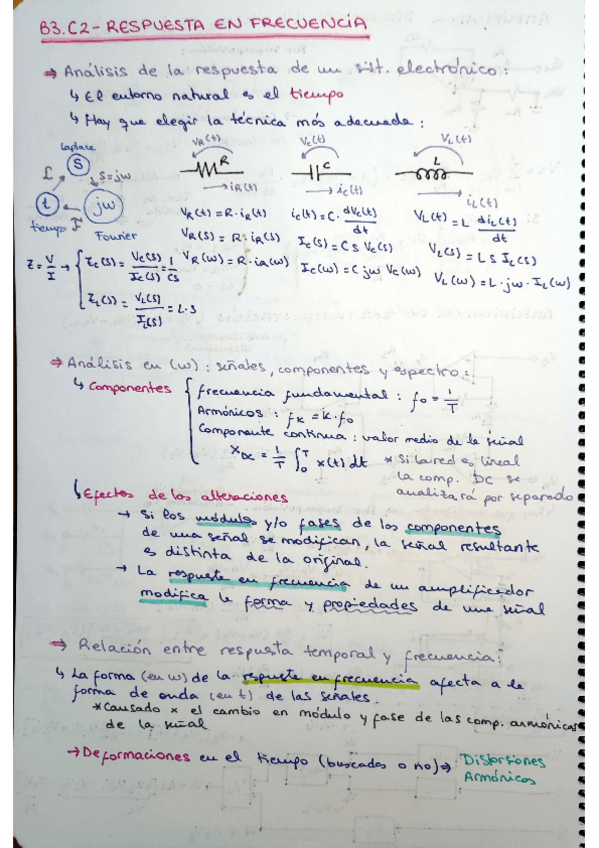 B3.C2 - RESPUESTA EN FRECUENCIA
⇒ Análisis de la respuesta de un sist. electrónico:
↳ El entorno natural es el tiempo
↳ Hay que elegir la técnica más adecuada:
Laplace
S
L
S=jw
t
jw
F
tiempo
Fourier
VR(t)
R
iR(t)
VR(t) = R · iR(t)
VR(s) = R · iR(s)
VR(w) = R · iR(w)
Vc(t)
C
ic(t)
ic(t) = C · dVc(t)/dt
Ic(s) = C s Vc(s)
Ic(w) = C jw Vc(w)
VL(t)
L
iL(t)
VL(t) = L diL(t)/dt
VL(s) = L s IL(s)
VL(w) = L · jw · IL(w)
Z = V/I → { Zc(s) = Vc(s)/Ic(s) = 1/Cs
ZL(s) = VL(s)/IL(s) = L · s
⇒ Análisis en (w): señales, componentes y espectro:
↳ Componentes { frecuencia fundamental: fo = 1/T
Armónicos: fk = k · fo
Componente continua: valor medio de la señal
XDC = 1/T ∫₀ᵀ x(t) dt * Si la red es lineal
la comp. DC se
analizará por separado
↳ Efectos de las alteraciones
→ Si los módulos y/o fases de los componentes
de una señal se modifican, la señal resultante
es distinta de la original.
→ La respuesta en frecuencia de un amplificador
modifica la forma y propiedades de una señal
⇒ Relación entre respuesta temporal y frecuencia:
↳ La forma (en w) de la respuesta en frecuencia afecta a la
forma de onda (en t) de las señales.
* Causado x el cambio en módulo y fase de las comp. armónicas
de la señal
→ Deformaciones en el tiempo (buscadas o no) → Distorsiones
Armónicos